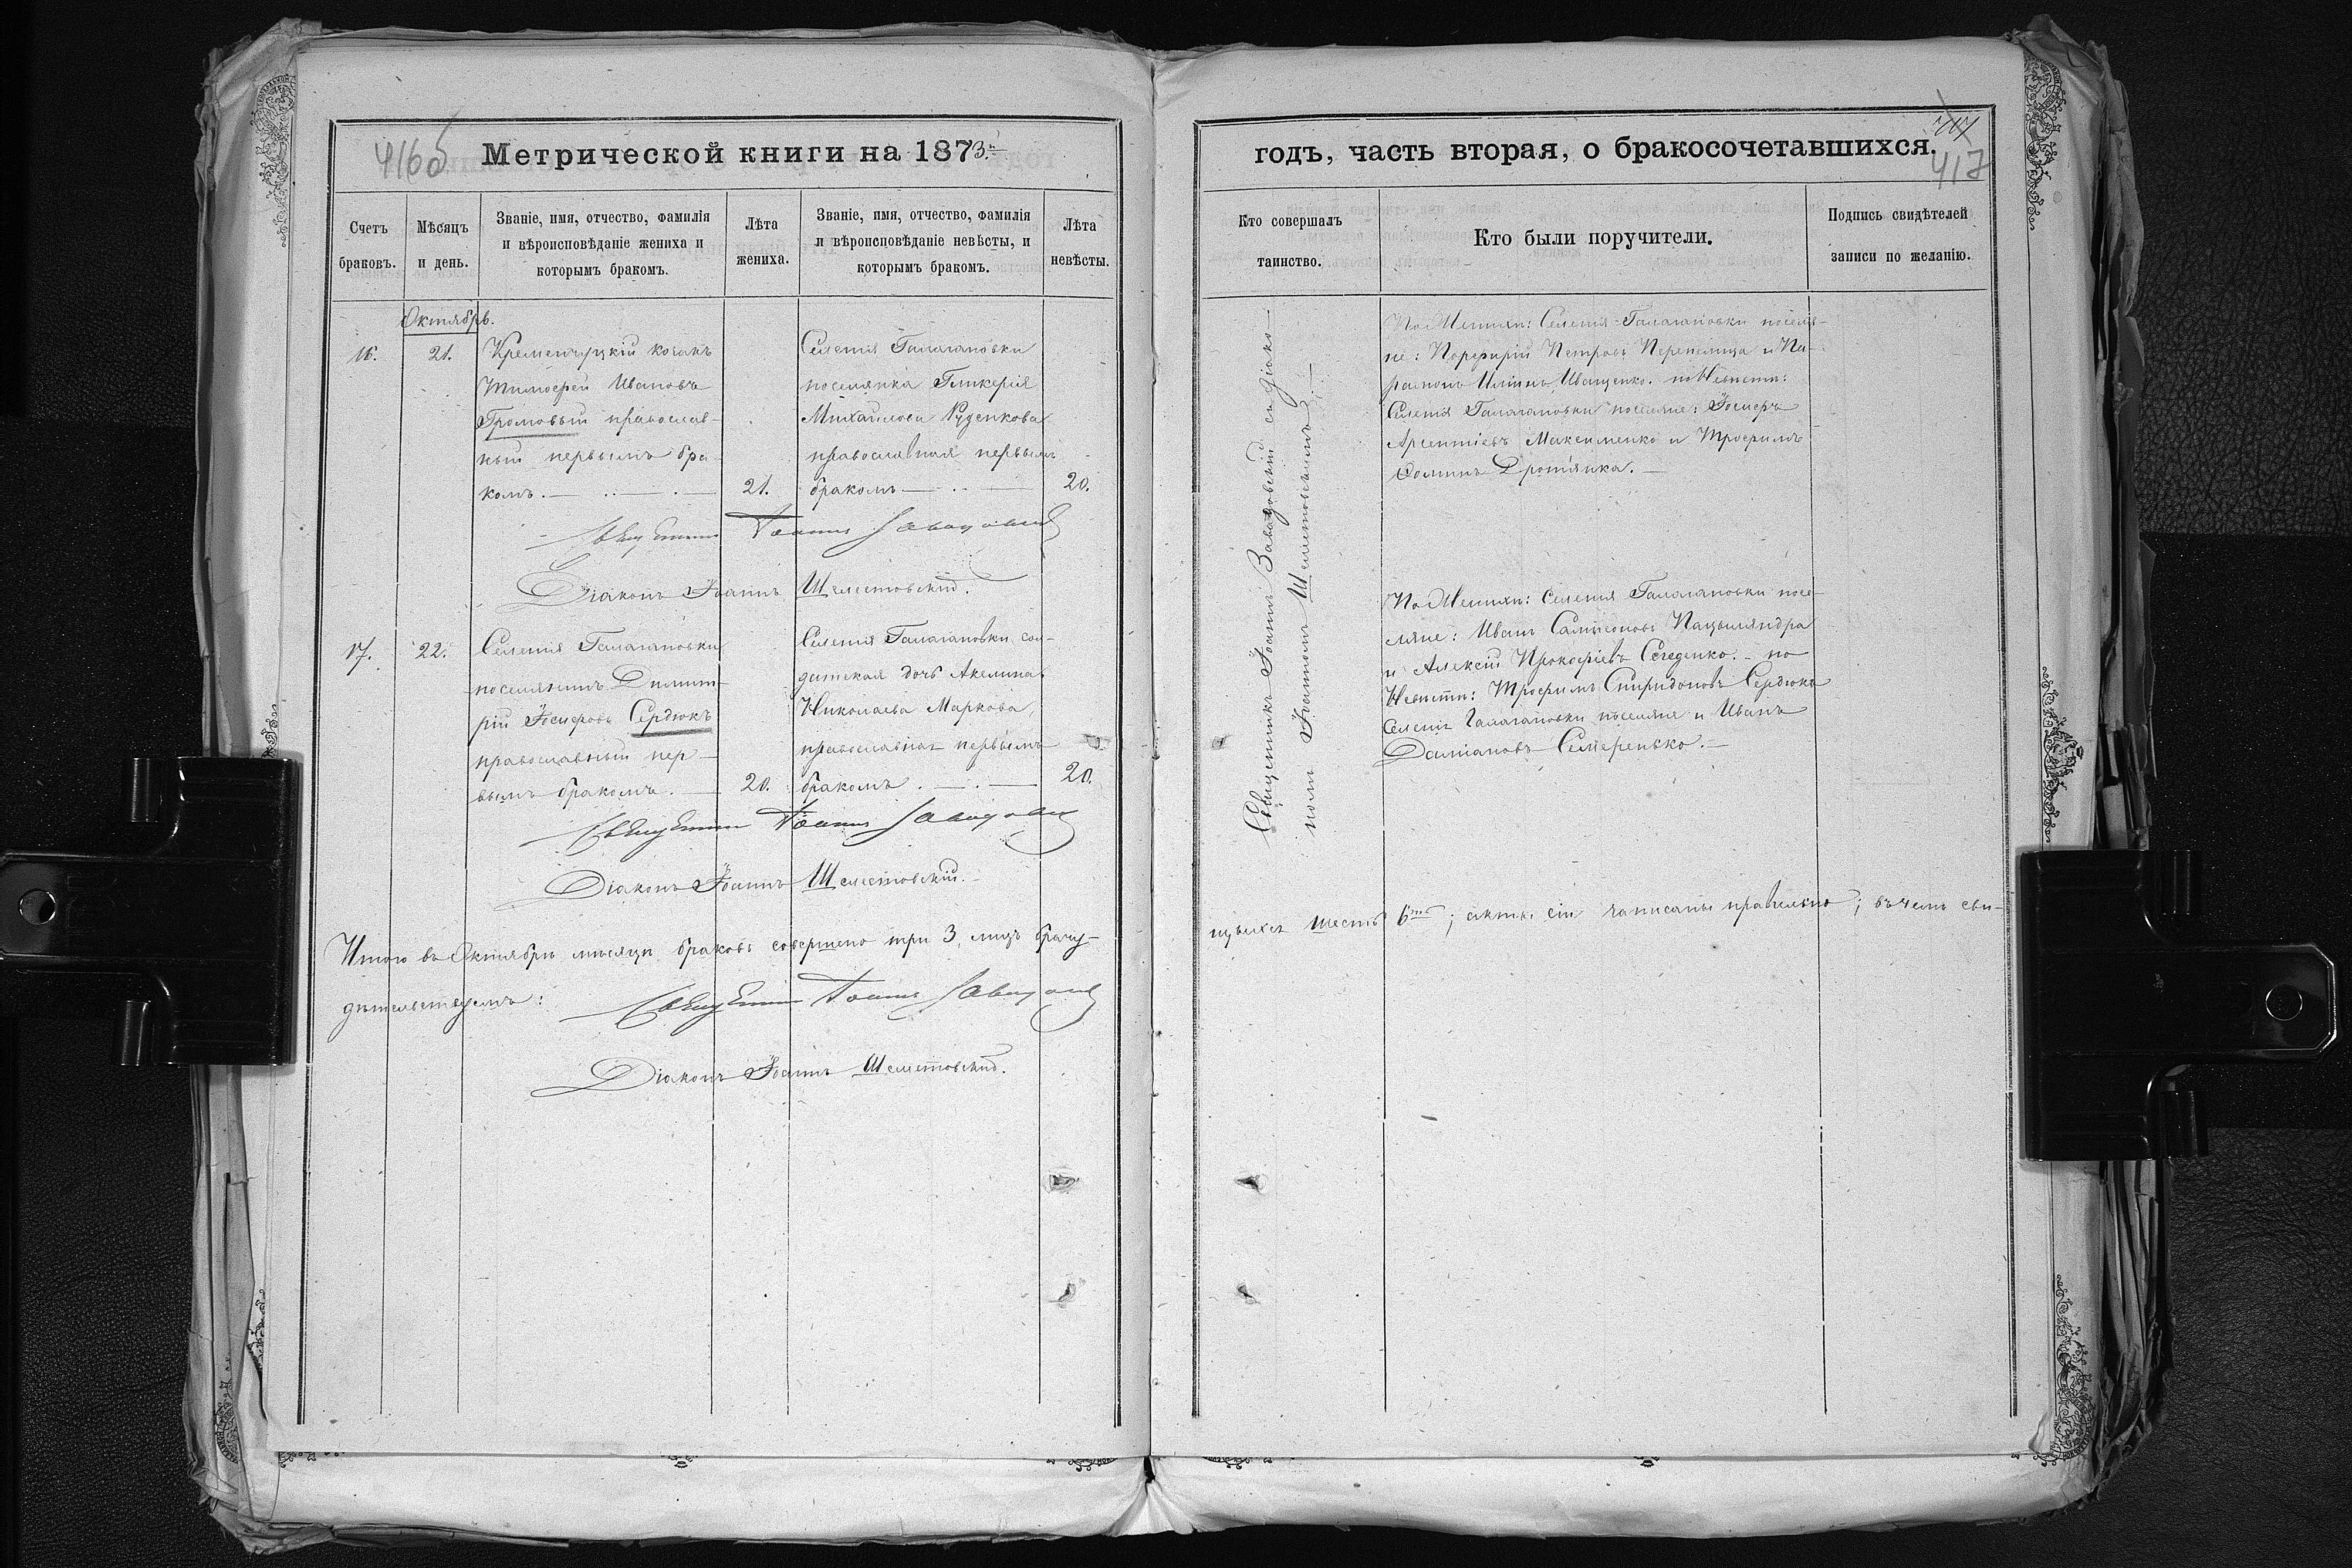 416об
Метрической книги на 1873й
Счетъ браковъ.
Мѣсяцъ и день.
Званіе, имя, отчество, фамилія
и вѣроисповѣданіе жениха и
которымъ бракомъ.
Лѣта
жениха.
Званіе, имя, отчество, фамилія
и вѣроисповѣданіе невѣсты, и
которымъ бракомъ.
Лѣта
невѣсты.
Октябрь.
16.
21.
Кременчуцкій козакъ
Тимофей Ивановъ
Громовый православ-
ный первымъ бра
комъ.
21.
Селенія Галагановки
поселянка Гликерія
Михайлова Руденкова
православная первымъ
бракомъ
20.
Священникъ Іоаннъ Завадовскій
Діаконъ Іоаннъ Шелестовскій.
17.
22.
Селенія Галагановки
поселянинъ Димит-
рій Іосифовъ Сердюкъ
православный пер-
вымъ бракомъ.
20.
Селенія Галагановки сол-
датская дочь Акелина
Николаева Маркова,
православная первымъ
бракомъ.
20.
Священникъ Іоаннъ Завадовскій
Діаконъ Іоаннъ Шелестовскій.
Итого въ Октябрѣ мѣсяцѣ браковъ совершено три 3, лицъ брачу-
дѣтельствуемъ:
Священникъ Іоаннъ Завадовскій
Діаконъ Іоаннъ Шелестовскій.
417
годъ, часть вторая, о бракосочетавшихся.
417
Кто совершалъ
таинство.
Кто были поручители.
Подпись свидѣтелей
записи по желанію.
Священникъ Іоаннъ Завадовскій съ діако-
номъ Іоанномъ Шелестовскимъ.
По Женихѣ: Селенія Галагановки поселя-
не: Порфирій Петровъ Перепелица и Па-
рамонъ Иващенко. по Невѣстѣ:
Селенія Галагановки поселяне: Іосифъ
Арсентіевъ Максименко и Трофимъ
Фоминъ Дротянка.
По Женихѣ: Селенія Галагановки посе-
ляне: Иванъ Самсоновъ
и Алексій Прокофіевъ по
Невѣстѣ: Трофимъ Спиридоновъ Сердюкъ
Селенія Галагановки поселяне и Иванъ
Даміановъ Семеренько.
щихся шесть 6ть; акты сіи записаны правильно; въ чемъ сви-